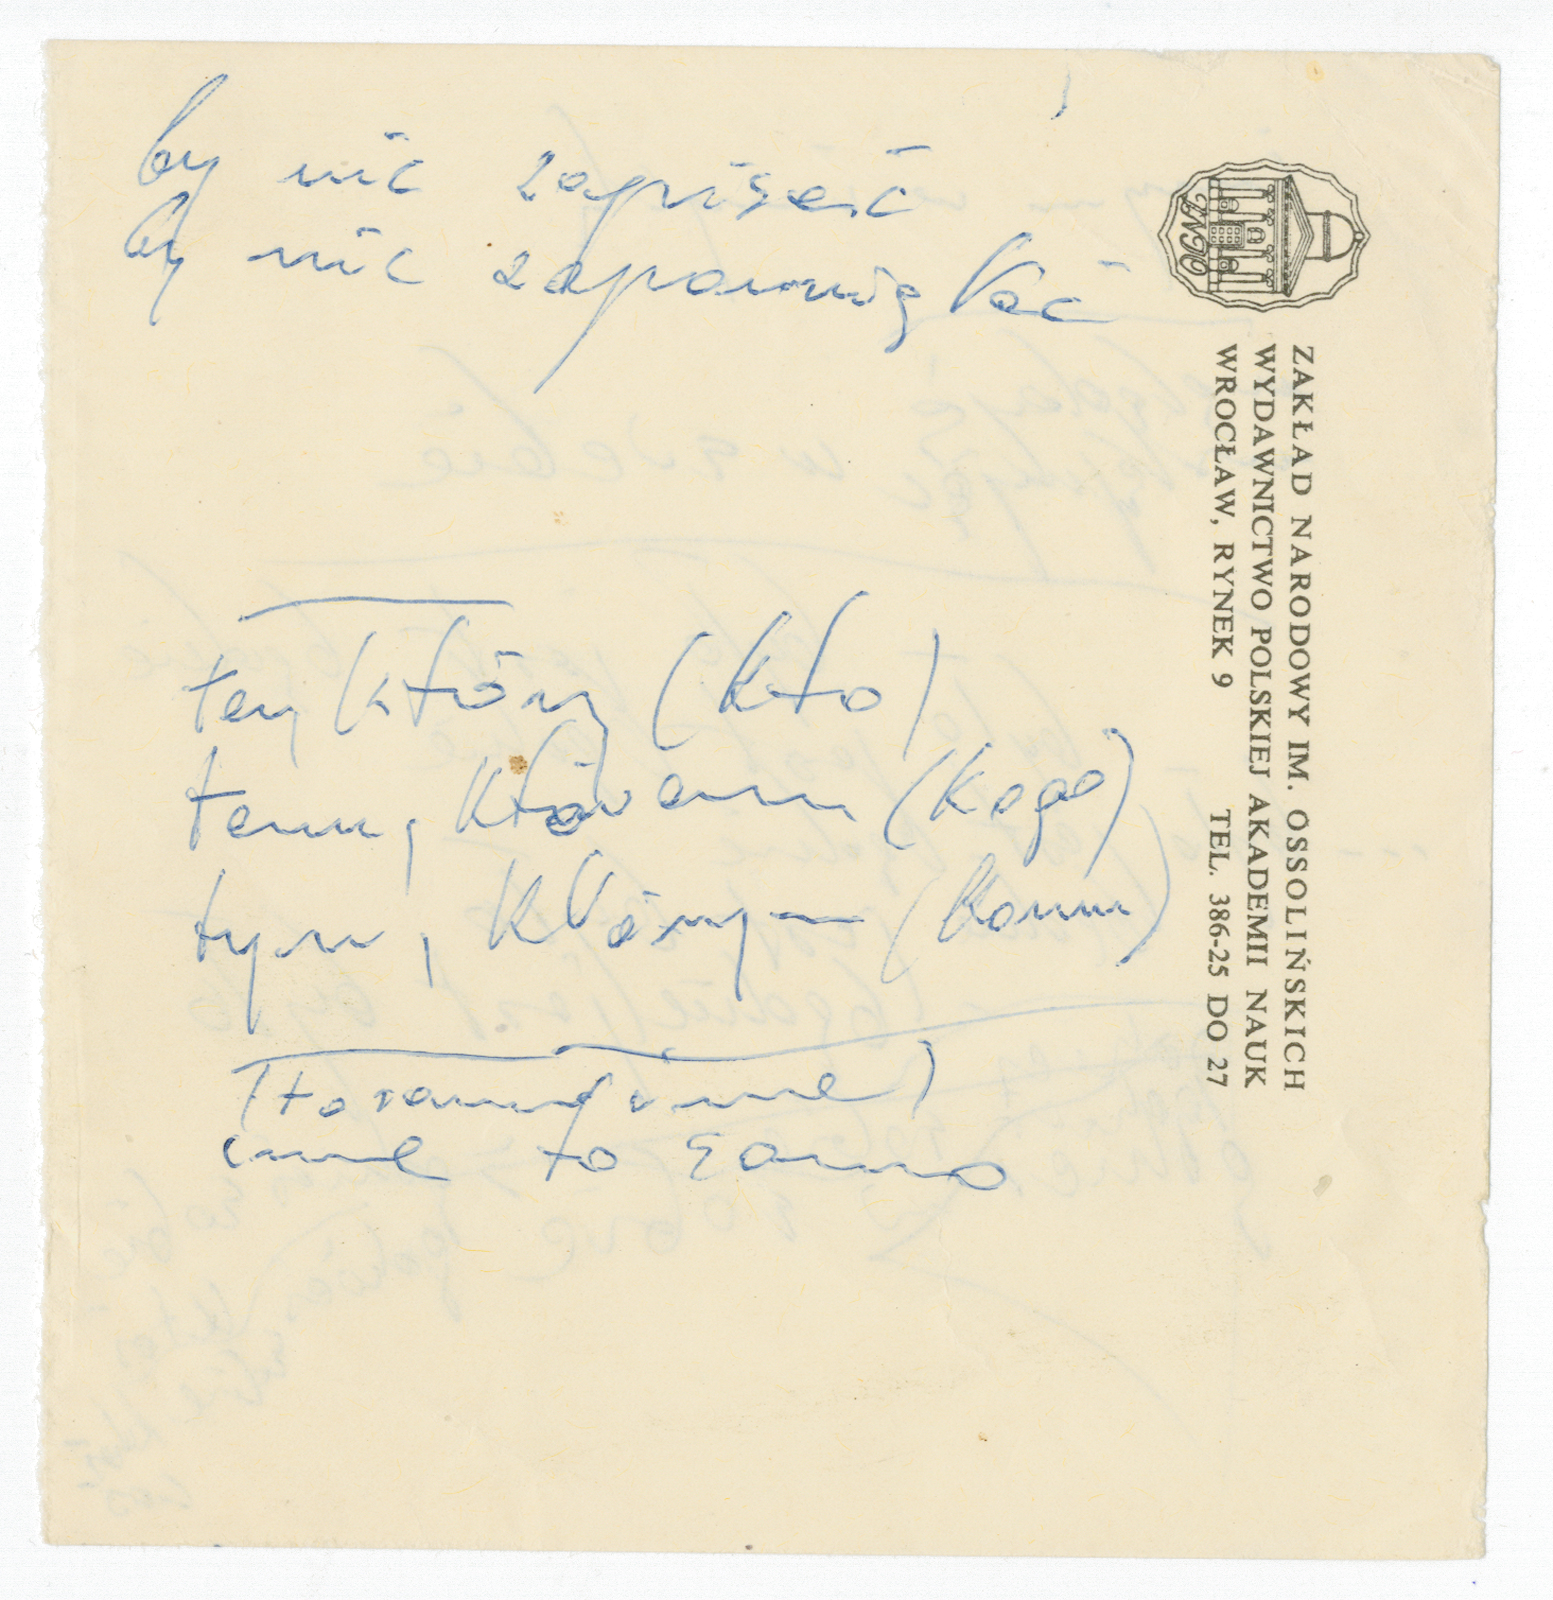 by nic zapisać
by nic zapamiętać
ten który (kto)
temu, któremu (kogo)
tym, którym (komu)
(to samo inne)
inne to samo
ZAKŁAD NARODOWY IM. OSSOLIŃSKICH
WYDAWNICTWO POLSKIEJ AKADEMII NAUK
WROCŁAW, RYNEK 9 TEL. 386-25 DO 27